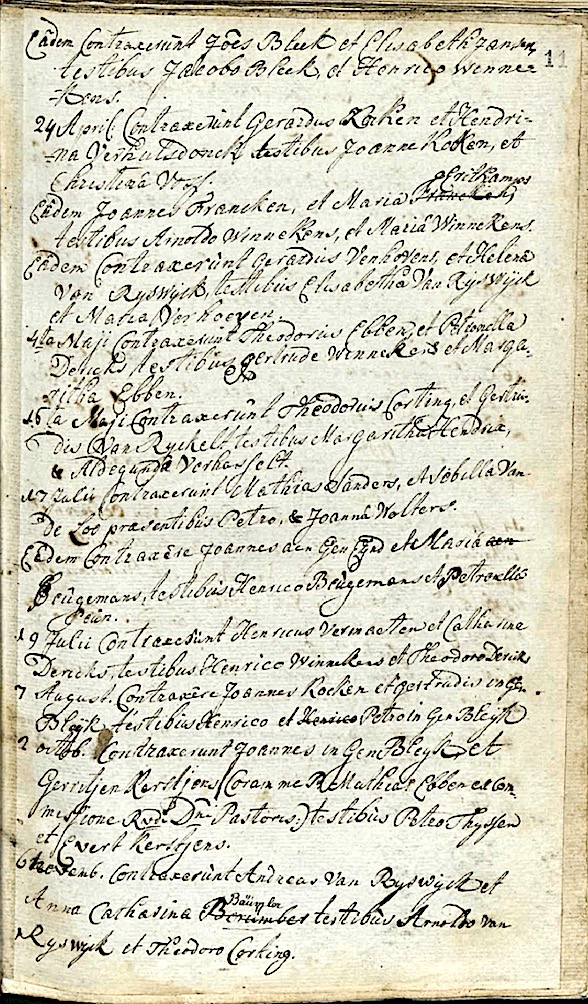 Eâdem Contraxerunt Joês Bleek et Elisabeth Jansen, 11
testibus Jakobo Bleek, et Henrico Winne-
-kens.
24 April. Contraxerunt Gerardus Kocken et Hendri-
-na Verhulsdonck testibus Joanne Kocken, et
Christina Vos.
Gritkamps
Eâdem Joannes Francken, et Maria Francken,
testibus Arnoldo Winnekens, et Mariâ Winnekens.
Eâdem Contraxerunt Gerardus Venhovens, et Helena
Van Ryswijck, testibus Elisabetha Van Ryswijck
et Maria Verhoeven.
4ta Maji Contraxerunt Theodorus Ebben, et Petronella
Dericks testibus gertrude Winnekens et Marga-
ritha Ebben.
16ta Maji Contraxerunt Theodoruis Corting, et Gertru-
dis Van Ryckelt testibus Margaritha Hendrix,
& Aldegunda Verhasselt.
17 Julii Contraxerunt Mathias Sanders, et Sibilla Van
De Loo praesentibus Petro, & Joannâ Wolters.
Eâdem Contraxêre Joannes aen Gen Eynd et Maria aen
Beugemans, testibus Henrico Beugemans et Petronella
Peün.
19 Julii Contraxerunt Henricus Vermaeten et Catharina
Dericks, testibus Henrico Winnekens et Theodoro Dericks
7 August. Contraxêre Joannes Kocken et gertrudis in Gen
Bleijk testibus Henrico et Henrico Petro in Gen Bleyk
2 octob. Contraxerunt Joannes in Gen Bleyk, et
Gerritjen Kerstjens (Coram me R. Mathias Ebben ex Com-
missione Rvdi Dni Pastoris.) testibus Peteo Thyssen
et Evert Kerstjens.
6 novemb. Contraxerunt Andreas Van Ryswyck et
Bäumler
Anna Catharina Berumber testibus Arnoldo Van
Ryswyck et Theodoro Corking.